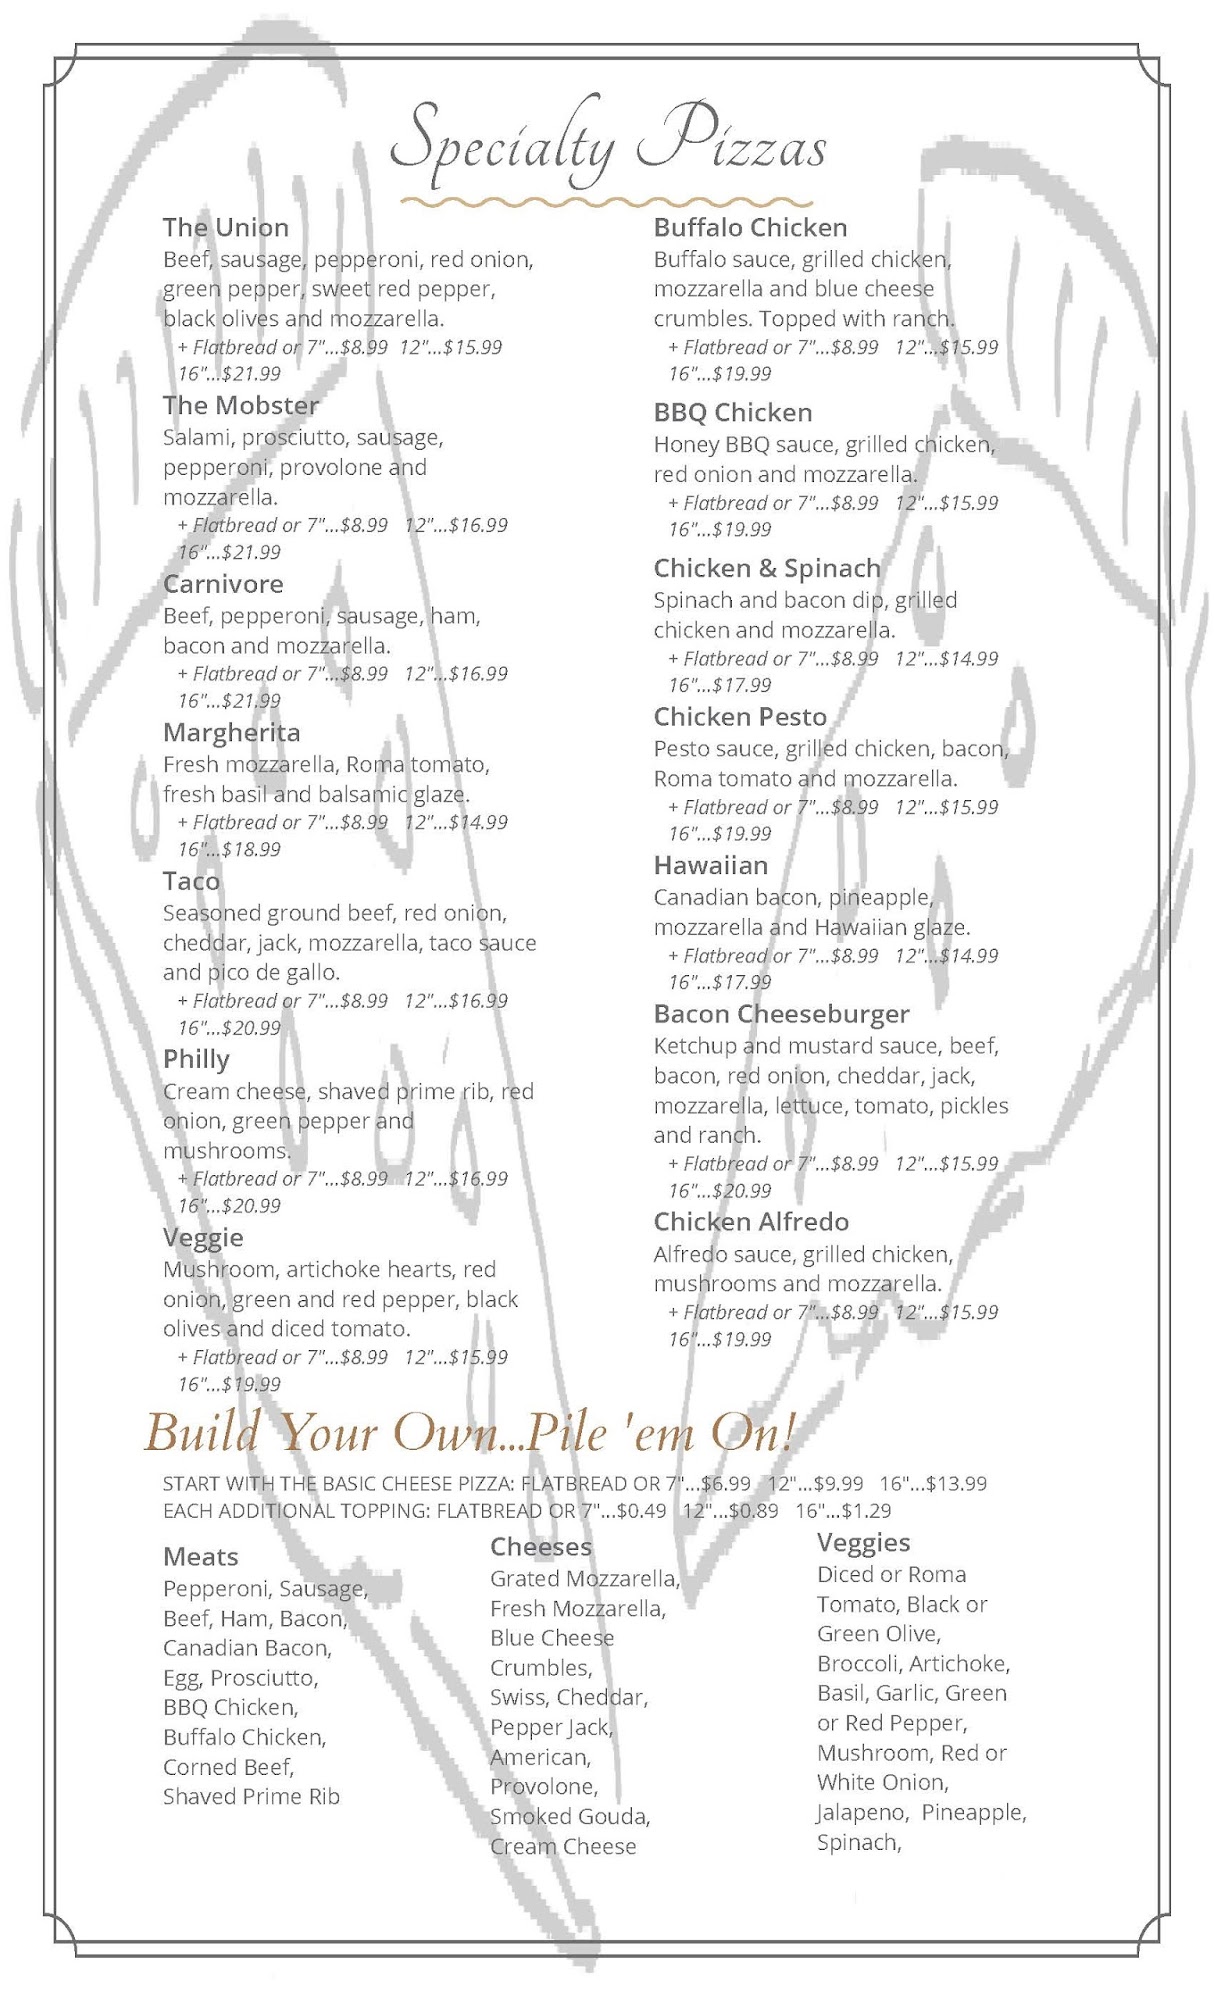 Specialty Pizzas
The Union
Beef, sausage, pepperoni, red onion,
green pepper, sweet red pepper,
black olives and mozzarella.
+ Flatbread or 7"...$8.99 12"...$15.99
16"...$21.99
The Mobster
Salami, prosciutto, sausage,
pepperoni, provolone and
mozzarella.
+ Flatbread or 7"...$8.99 12"...$16.99
16"...$21.99
Carnivore
Beef, pepperoni, sausage, ham,
bacon and mozzarella.
+ Flatbread or 7"...$8.99 12"...$16.99
16"...$21.99
Margherita
Fresh mozzarella, Roma tomato,
fresh basil and balsamic glaze.
+ Flatbread or 7"...$8.99 12"...$14.99
16"...$18.99
Taco
Seasoned ground beef, red onion,
cheddar, jack, mozzarella, taco sauce
and pico de gallo.
+ Flatbread or 7"...$8.99 12"...$16.99
16"...$20.99
Philly
Cream cheese, shaved prime rib, red
onion, green pepper and
mushrooms.
+ Flatbread or 7"...$8.99 12"...$16.99
16"...$20.99
Veggie
Mushroom, artichoke hearts, red
onion, green and red pepper, black
olives and diced tomato.
+ Flatbread or 7"...$8.99 12"...$15.99
16"...$19.99
Buffalo Chicken
Buffalo sauce, grilled chicken,
mozzarella and blue cheese
crumbles. Topped with ranch.
+ Flatbread or 7"...$8.99 12"...$15.99
16"...$19.99
BBQ Chicken
Honey BBQ sauce, grilled chicken,
red onion and mozzarella.
+ Flatbread or 7"...$8.99 12"...$15.99
16"...$19.99
Chicken & Spinach
Spinach and bacon dip, grilled
chicken and mozzarella.
+ Flatbread or 7"...$8.99 12"...$14.99
16"...$17.99
Chicken Pesto
Pesto sauce, grilled chicken, bacon,
Roma tomato and mozzarella.
+ Flatbread or 7"...$8.99 12"...$15.99
16"...$19.99
Hawaiian
Canadian bacon, pineapple,
mozzarella and Hawaiian glaze.
+ Flatbread or 7"...$8.99 12"...$14.99
16"...$17.99
Bacon Cheeseburger
Ketchup and mustard sauce, beef,
bacon, red onion, cheddar, jack,
mozzarella, lettuce, tomato, pickles
and ranch.
+ Flatbread or 7"...$8.99 12"...$15.99
16"...$20.99
Chicken Alfredo
Alfredo sauce, grilled chicken,
mushrooms and mozzarella.
+ Flatbread or 7"...$8.99 12"...$15.99
16"...$19.99
Build Your Own...Pile 'em On!
START WITH THE BASIC CHEESE PIZZA: FLATBREAD OR 7"...$6.99 12"...$9.99 16"...$13.99
EACH ADDITIONAL TOPPING: FLATBREAD OR 7"...$0.49 12"...$0.89 16"...$1.29
Meats
Pepperoni, Sausage,
Beef, Ham, Bacon,
Canadian Bacon,
Egg, Prosciutto,
BBQ Chicken,
Buffalo Chicken,
Corned Beef,
Shaved Prime Rib
Cheeses
Grated Mozzarella,
Fresh Mozzarella,
Blue Cheese
Crumbles,
Swiss, Cheddar,
Pepper Jack,
American,
Provolone,
Smoked Gouda,
Cream Cheese
Veggies
Diced or Roma
Tomato, Black or
Green Olive,
Broccoli, Artichoke,
Basil, Garlic, Green
or Red Pepper,
Mushroom, Red or
White Onion,
Jalapeno, Pineapple,
Spinach,